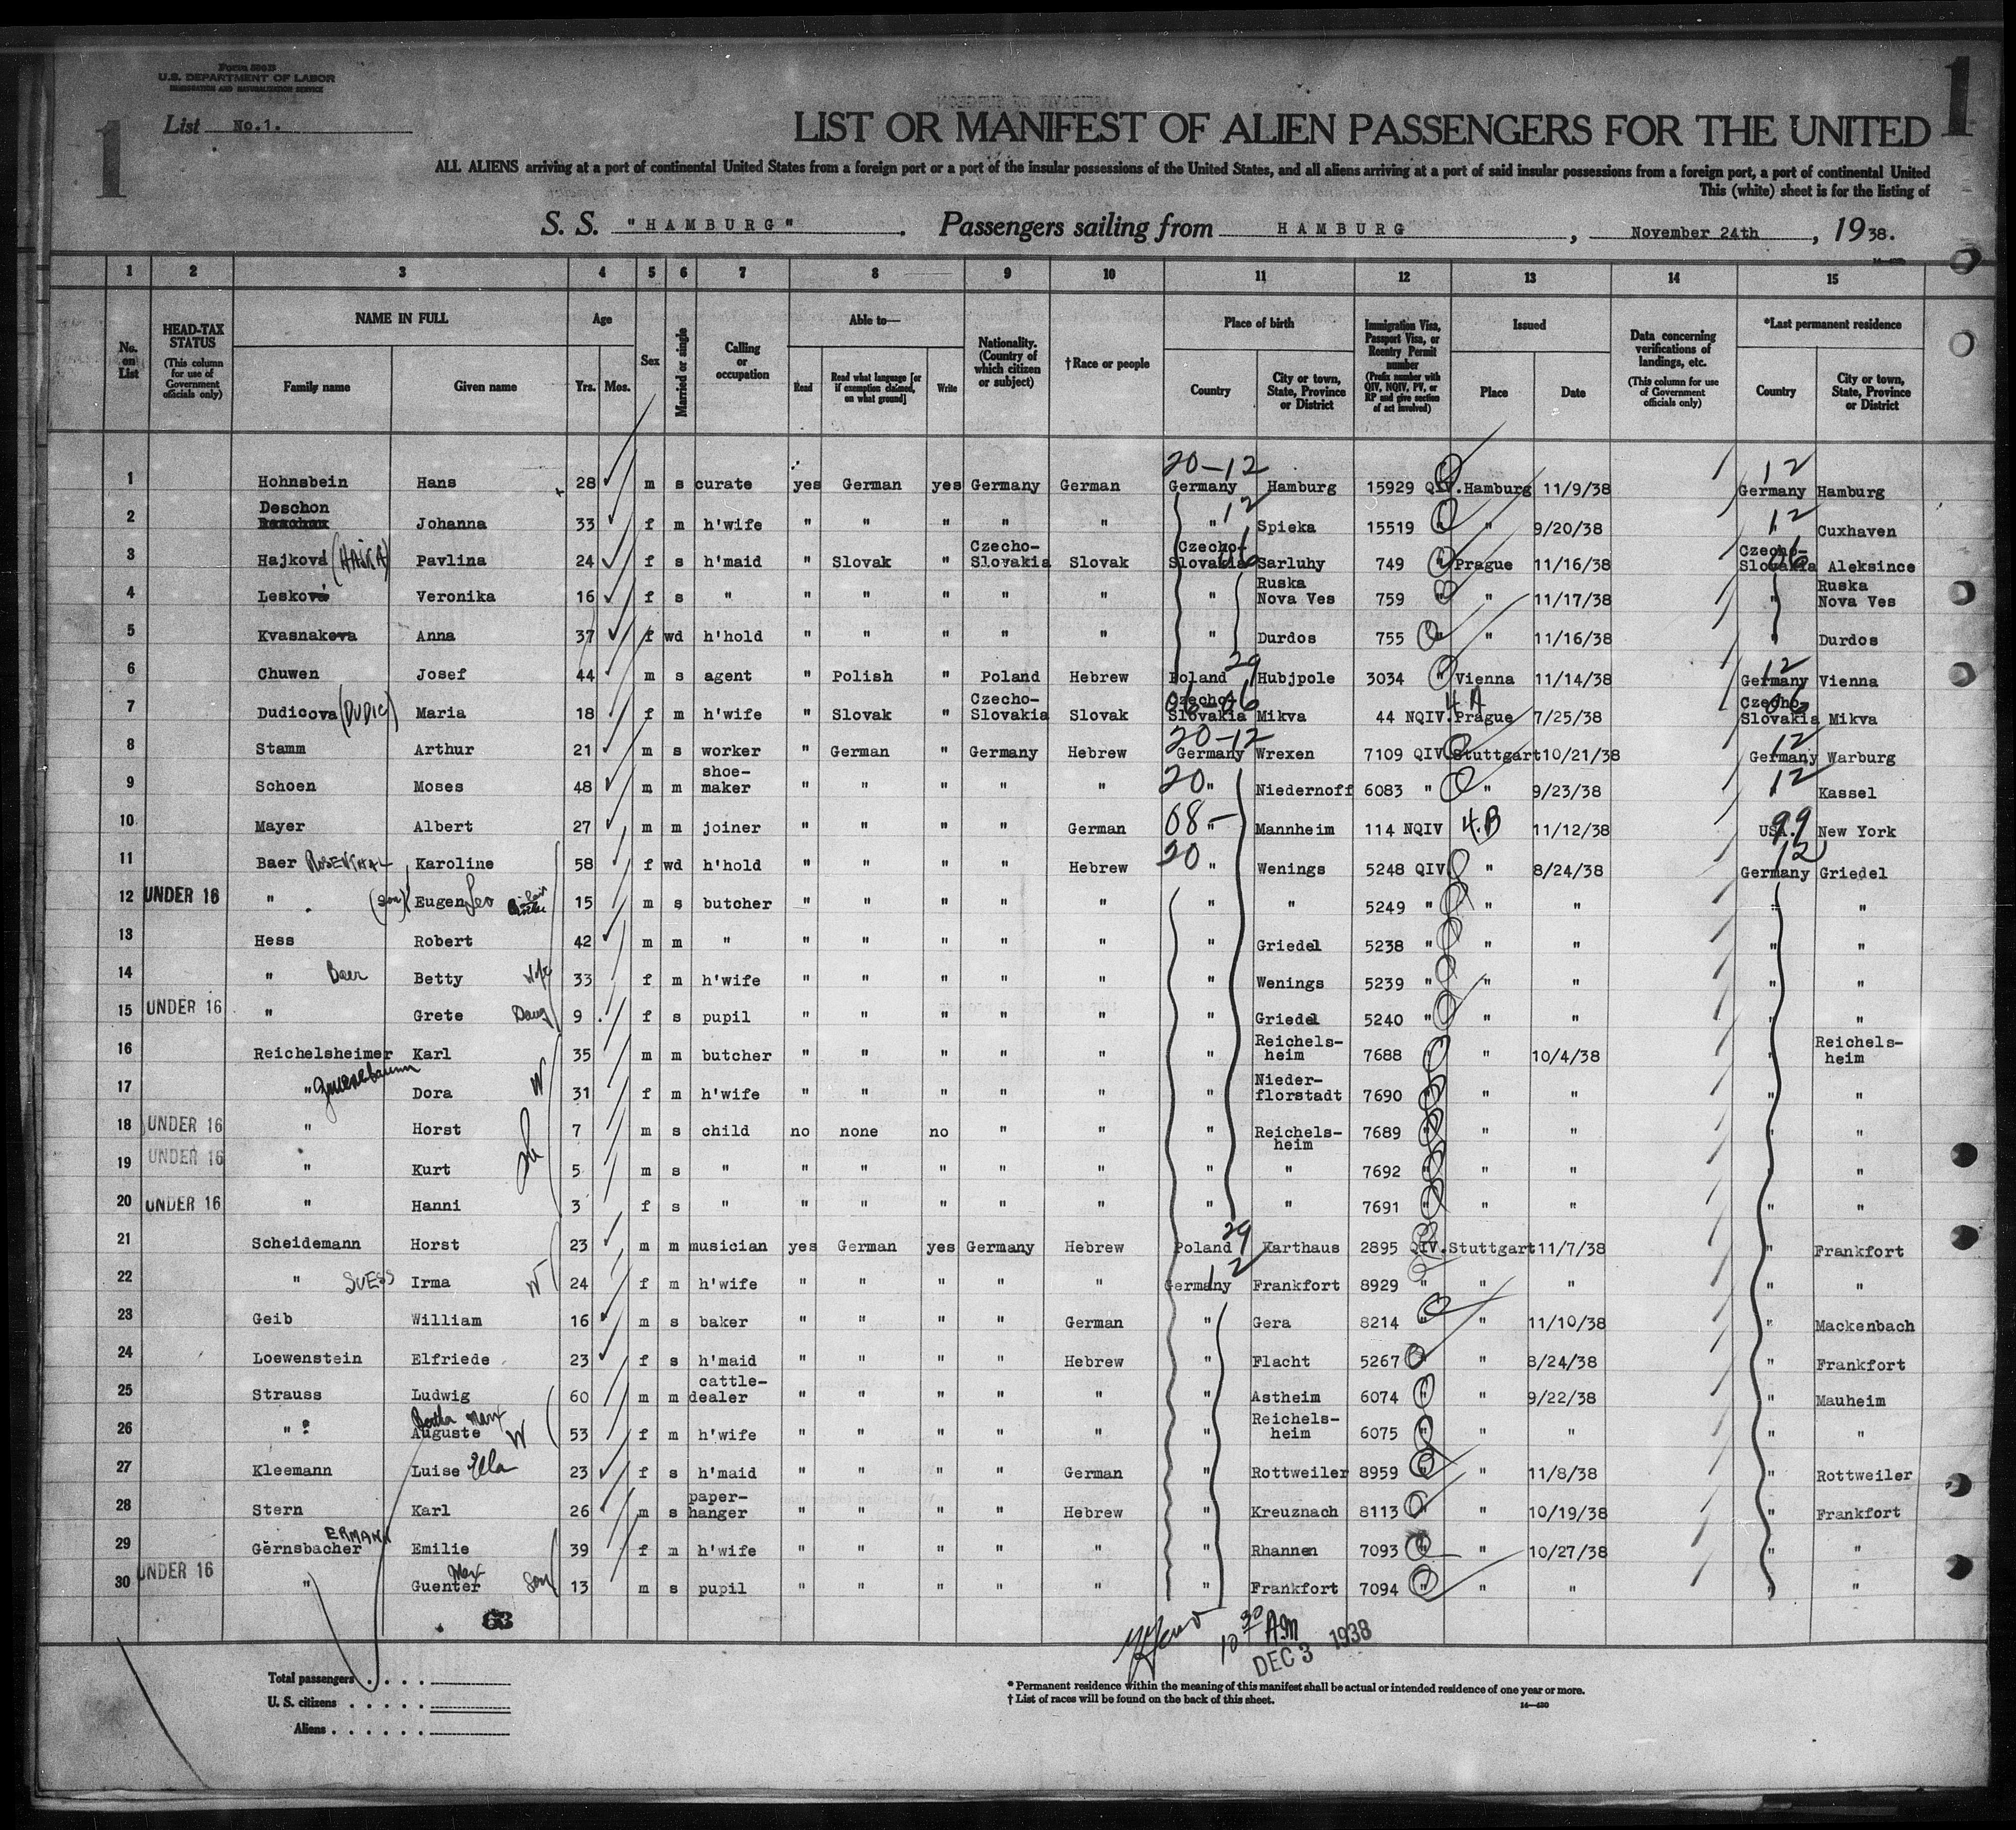 Form 500B
U.S. DEPARTMENT OF LABOR
IMMIGRATION AND NATURALIZATION SERVICE
1
1
List No.1.
LIST OR MANIFEST OF ALIEN PASSENGERS FOR THE UNITED
ALL ALIENS arriving at a port of continental United States from a foreign port or a port of the insular possessions of the United States, and all aliens arriving at a port of said insular possessions from a foreign port, a port of continental United
This (white) sheet is for the listing of
S. S. "HAMBURG". Passengers sailing from HAMBURG, November 24th, 1938.
1 2 3 4 5 6 7 8 9 10 11 12 13 14 15
No. on List
HEAD-TAX STATUS (This column for use of Government officials only)
NAME IN FULL Family name Given name
Age Yrs. Mos.
Sex
Married or single
Calling or occupation
Able to— Read Read what language [or if exemption claimed, on what ground] Write
Nationality. (Country of which citizen or subject)
†Race or people
Place of birth Country City or town, State, Province or District
Immigration Visa, Passport Visa, or Reentry Permit number (Prefix number with QIV, NQIV, PV, or RP and give section of act involved)
Issued Place Date
Data concerning verifications of landings, etc. (This column for use of Government officials only)
*Last permanent residence Country City or town, State, Province or District
20-12 12
1 Hohnsbein Hans 28 m s curate yes German yes Germany German Germany Hamburg 15929 QIV. Hamburg 11/9/38 Germany Hamburg
2 Deschon Johanna 33 f m h'wife " " " " " " 12 Spieka 15519 " " 9/20/38 " 12 Cuxhaven
3 Hajková (HAJKA) Pavlina 24 f s h'maid " Slovak " Czecho-Slovakia Slovak Czecho-Slovakia 06 Sarluhy 749 " Prague 11/16/38 Czecho-Slovakia 06 Aleksince
4 Lesková Veronika 16 f s " " " " " " " Ruska Nova Ves 759 " " 11/17/38 " Ruska Nova Ves
5 Kvasnakova Anna 37 f wd h'hold " " " " " " Durdos 755 " " 11/16/38 " Durdos
6 Chuwen Josef 44 m s agent " Polish " Poland Hebrew Poland 29 Hubjpole 3034 " Vienna 11/14/38 12 Germany Vienna
7 Dudicova (DUDIC) Maria 18 f m h'wife " Slovak " Czecho-Slovakia Slovak Czecho-Slovakia 06-06 Mikva 44 NQIV. 4A Prague 7/25/38 Czecho-Slovakia 06 Mikva
8 Stamm Arthur 21 m s worker " German " Germany Hebrew 20-12 Germany Wrexen 7109 QIV. Stuttgart 10/21/38 12 Germany Warburg
9 Schoen Moses 48 m m shoe-maker " " " " " 20 " Niedernoff 6083 " " 9/23/38 12 Kassel
10 Mayer Albert 27 m m joiner " " " " German 08- " Mannheim 114 NQIV 4.B 11/12/38 USA. 99 New York
11 Baer ROSENTHAL Karoline 58 f wd h'hold " " " " Hebrew 20 " Wenings 5248 QIV. " 8/24/38 12 Germany Griedel
12 UNDER 16 " (son) Eugen Leo 15 m s butcher " " " " " " " 5249 " " " " "
13 Hess Robert 42 m m " " " " " " " Griedel 5238 " " " " "
14 " Baer Betty Wife 33 f m h'wife " " " " " " Wenings 5239 " " " " "
15 UNDER 16 " Grete Daug 9 f s pupil " " " " " " Griedel 5240 " " " " "
16 Reichelsheimer Karl 35 m m butcher " " " " " " Reichels-heim 7688 " " 10/4/38 " Reichels-heim
17 " Dora W 31 f m h'wife " " " " " " Nieder-florstadt 7690 " " " " "
18 UNDER 16 " Horst 7 m s child no none no " " " Reichels-heim 7689 " " " " "
19 UNDER 16 " Kurt 5 m s " " " " " " " " 7692 " " " " "
20 UNDER 16 " Hanni 3 f s " " " " " " " " 7691 " " " " "
21 Scheidemann Horst 23 m m musician yes German yes Germany Hebrew Poland 29 Karthaus 2895 QIV. Stuttgart 11/7/38 " Frankfort
22 " SUESS Irma W 24 f m h'wife " " " " " Germany 12 Frankfort 8929 " " " " "
23 Geib William 16 m s baker " " " " German " Gera 8214 " " 11/10/38 " Mackenbach
24 Loewenstein Elfriede 23 f s h'maid " " " " Hebrew " Flacht 5267 " " 8/24/38 " Frankfort
25 Strauss Ludwig 60 m m cattle-dealer " " " " " " Astheim 6074 " " 9/22/38 " Mauheim
26 " Bertha Marx Auguste W 53 f m h'wife " " " " " " Reichels-heim 6075 " " " " "
27 Kleemann Luise Ella 23 f s h'maid " " " " German " Rottweiler 8959 " " 11/8/38 " Rottweiler
28 Stern Karl 26 m s paper-hanger " " " " Hebrew " Kreuznach 8113 " " 10/19/38 " Frankfort
29 Gernsbacher ERMANN Emilie 39 f m h'wife " " " " " " Rhannen 7093 " " 10/27/38 " "
30 UNDER 16 " Max Guenter Son 13 m s pupil " " " " " " Frankfort 7094 " " " " "
63
10 30 AM
DEC 3 1938
Total passengers . . . .
U. S. citizens . . . . .
Aliens . . . . . .
* Permanent residence within the meaning of this manifest shall be actual or intended residence of one year or more.
† List of races will be found on the back of this sheet.
14—430